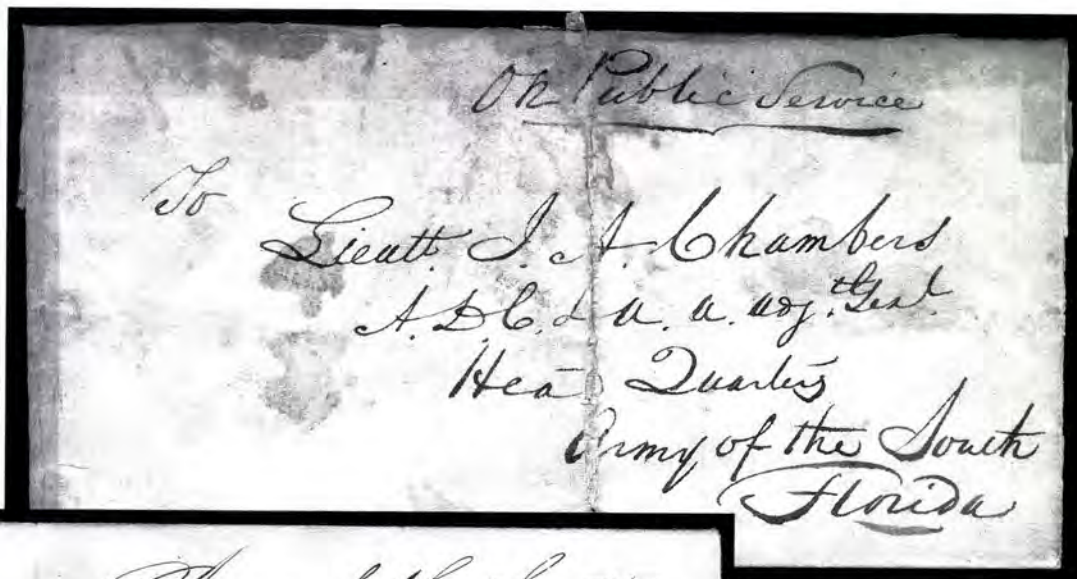 On Public Service
To
Lieutt. J. A. Chambers
A.D.C. & A. A. Adjt. Genl.
Head Quarters
Army of the South
Florida